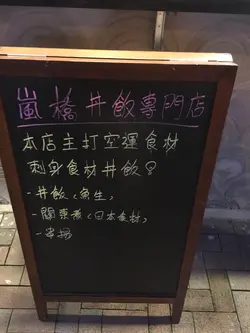 嵐橋丼飯專門店
本店主打空運食材
刺身食材丼飯？
-丼飯(魚生)
-關東煮(日本食材)
-串揚